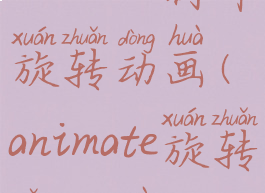 xuán zhuǎn dòng huà
旋转动画(
xuán zhuǎn
animate旋转